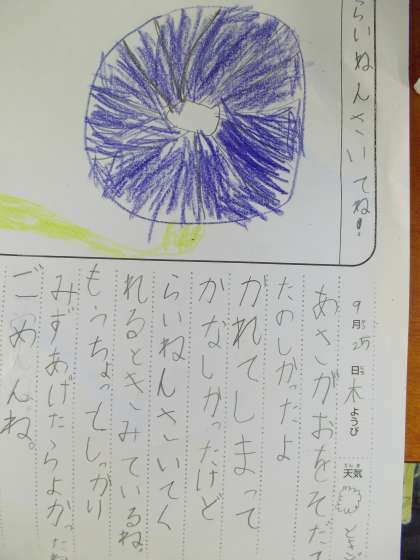 らいねんさいてね!
9月25日木ようび 天気
あさがおをそだて
たのしかったよ
がれてしまって
かなしかったけど
らいねんさいてく
れるときみているね。
もうちょっとしっかり
みずあげたらよかったね
ごめんね。